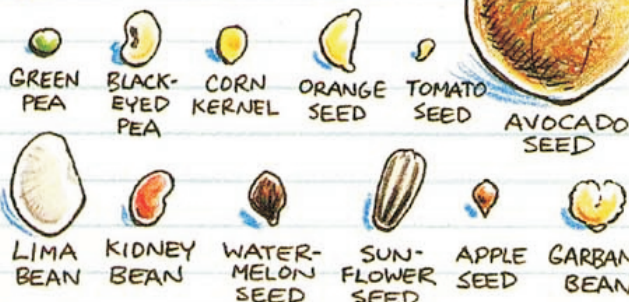 GREEN
PEA
BLACK-
EYED
PEA
CORN
KERNEL
ORANGE
SEED
TOMATO
SEED
AVOCADO
SEED
LIMA
BEAN
KIDNEY
BEAN
WATER-
MELON
SEED
SUN-
FLOWER
SEED
APPLE
SEED
GARBAN
BEAN